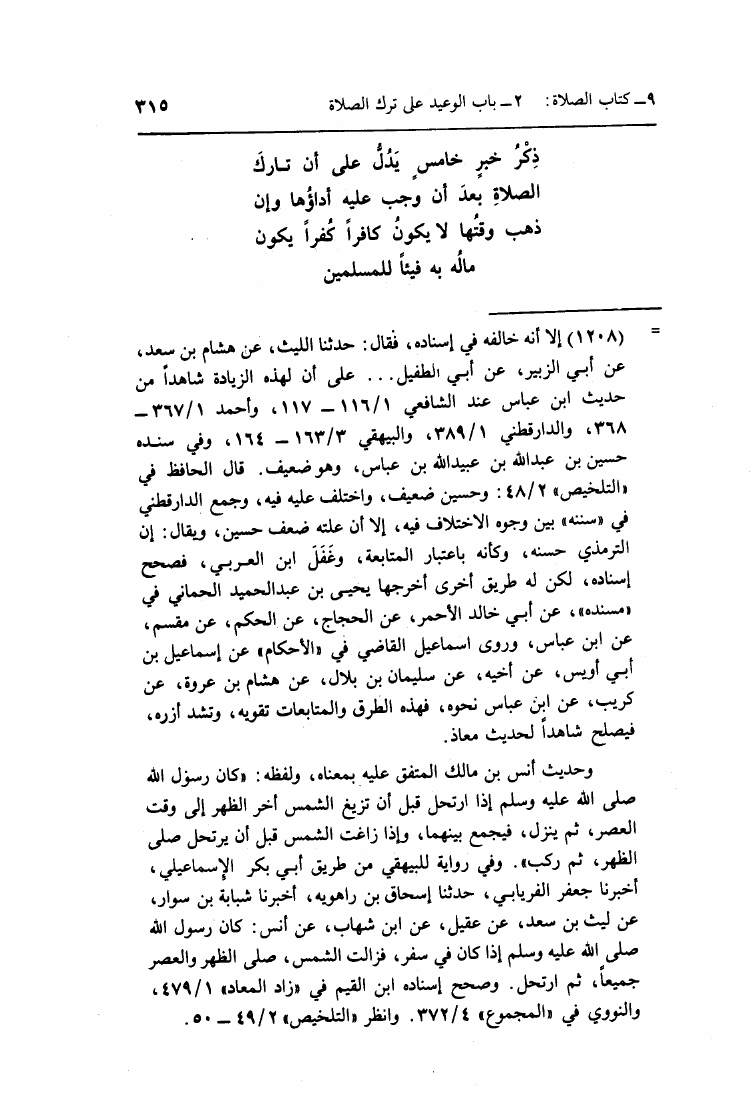 ٩ــ كتاب الصلاة: ٢ــ باب الوعيد على ترك الصلاة ٣١٥
ذِكْرُ خبرٍ خامسٍ يَدُلُّ على أن تاركَ
الصلاةِ بعدَ أن وجب عليه أداؤُها وإن
ذهب وقتُها لا يكونُ كافراً كُفراً يكون
مالُه به فيئاً للمسلمين
= (١٢٠٨) إلا أنه خالفه في إسناده، فقال: حدثنا الليث، عن هشام بن سعد،
عن أبي الزبير، عن أبي الطفيل... على أن لهذه الزيادة شاهداً من
حديث ابن عباس عند الشافعي ١١٦/١ ــ ١١٧، وأحمد ٣٦٧/١ ــ
٣٦٨، والدارقطني ٣٨٩/١، والبيهقي ١٦٣/٣ ــ ١٦٤، وفي سنده
حسين بن عبدالله بن عبيدالله بن عباس، وهو ضعيف. قال الحافظ في
«التلخيص» ٤٨/٢: وحسين ضعيف، واختلف عليه فيه، وجمع الدارقطني
في «سننه» بين وجوه الاختلاف فيه، إلا أن علته ضعف حسين، ويقال: إن
الترمذي حسنه، وكأنه باعتبار المتابعة، وغَفَلَ ابن العربي، فصحح
إسناده، لكن له طريق أخرى أخرجها يحيى بن عبدالحميد الحماني في
«مسنده»، عن أبي خالد الأحمر، عن الحجاج، عن الحكم، عن مقسم،
عن ابن عباس، وروى اسماعيل القاضي في «الأحكام» عن إسماعيل بن
أبي أويس، عن أخيه، عن سليمان بن بلال، عن هشام بن عروة، عن
كريب، عن ابن عباس نحوه، فهذه الطرق والمتابعات تقويه، وتشد أزره،
فيصلح شاهداً لحديث معاذ.
وحديث أنس بن مالك المتفق عليه بمعناه، ولفظه: «كان رسول الله
صلى الله عليه وسلم إذا ارتحل قبل أن تزيغ الشمس أخر الظهر إلى وقت
العصر، ثم ينزل، فيجمع بينهما، وإذا زاغت الشمس قبل أن يرتحل صلى
الظهر، ثم ركب». وفي رواية للبيهقي من طريق أبي بكر الإسماعيلي،
أخبرنا جعفر الفريابي، حدثنا إسحاق بن راهويه، أخبرنا شبابة بن سوار،
عن ليث بن سعد، عن عقيل، عن ابن شهاب، عن أنس: كان رسول الله
صلى الله عليه وسلم إذا كان في سفر، فزالت الشمس، صلى الظهر والعصر
جميعاً، ثم ارتحل. وصحح إسناده ابن القيم في «زاد المعاد» ٤٧٩/١،
والنووي في «المجموع» ٣٧٢/٤. وانظر «التلخيص» ٤٩/٢ ــ ٥٠.